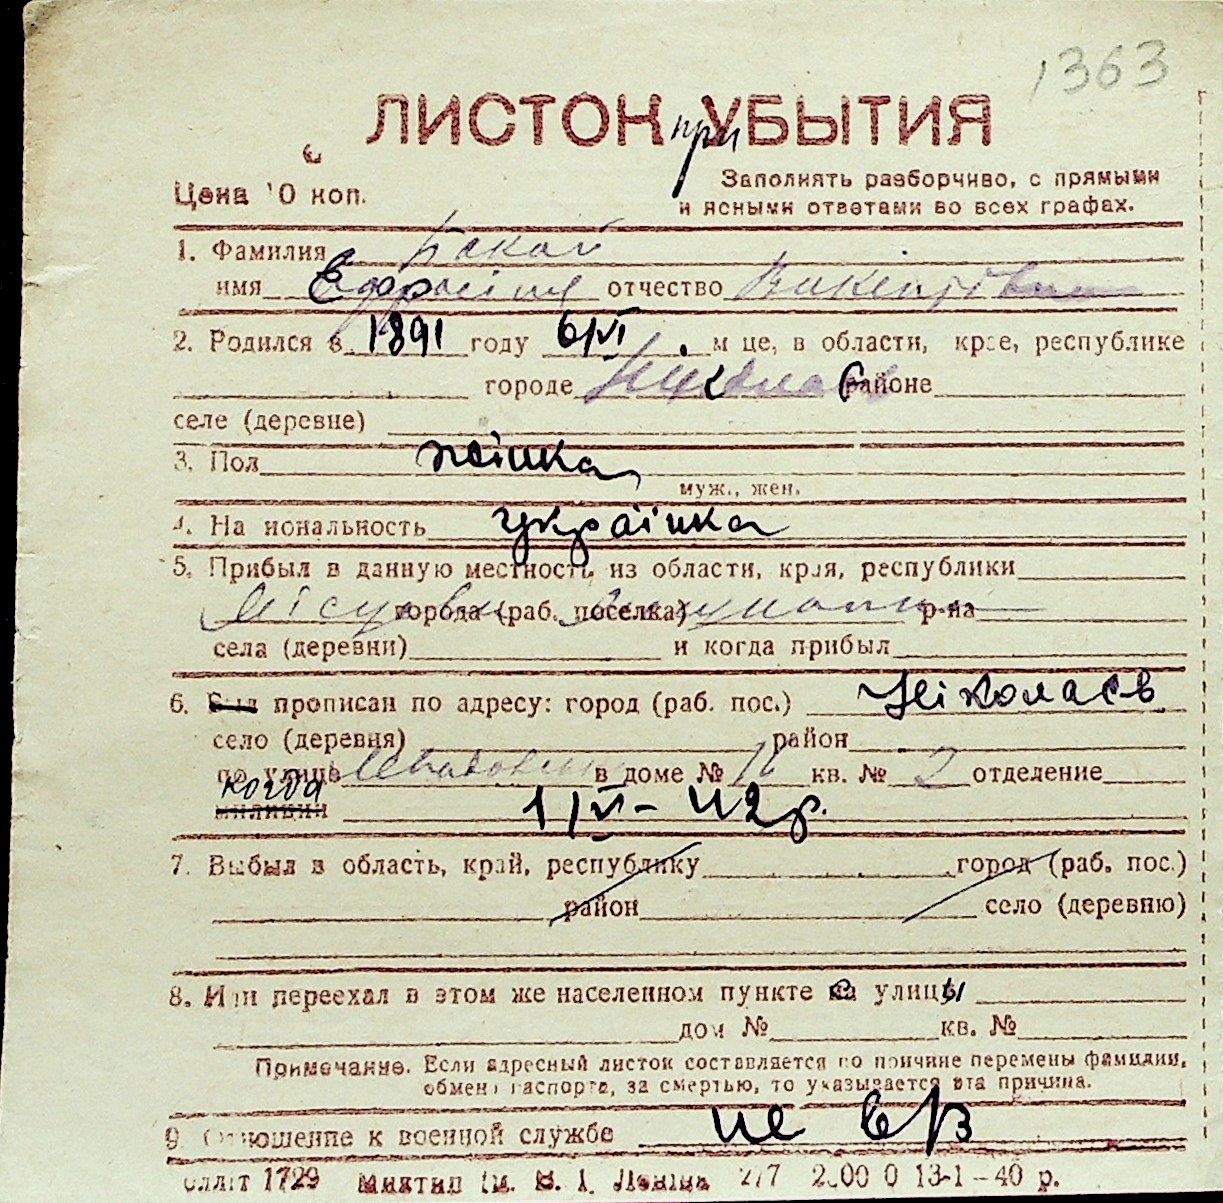 1363
ЛИСТОК при УБЫТИЯ
Цена 10 коп.
Заполнять разборчиво, с прямыми
и ясными ответами во всех графах.
1. Фамилия
имя Єфросіния отчество Викентівна
2. Родился в 1891 году 6/VI м це, в области, крае, республике
городе Ніколаєв районе
селе (деревне)
3. Пол жінка
муж., жен.
4. Национальность українка
5. Прибыл в данную местность из области, края, республики
города (раб. поселка) р-на
села (деревни) и когда прибыл
6. Был прописан по адресу: город (раб. пос.) Ніколаєв
село (деревня) район
по улице в доме № кв. № 2 отделение
когда
милиции 1/VI - 42 р.
7. Выбыл в область, край, республику город (раб. пос.)
район село (деревню)
8. Или переехал в этом же населенном пункте с улицы
дом № кв. №
Примечание. Если адресный листок составляется по причине перемены фамилии,
обмена паспорта, за смертью, то указывается эта причина.
9. Отношение к военной службе не в/з
1729 ім. В. І. Леніна 13-1-40 р.